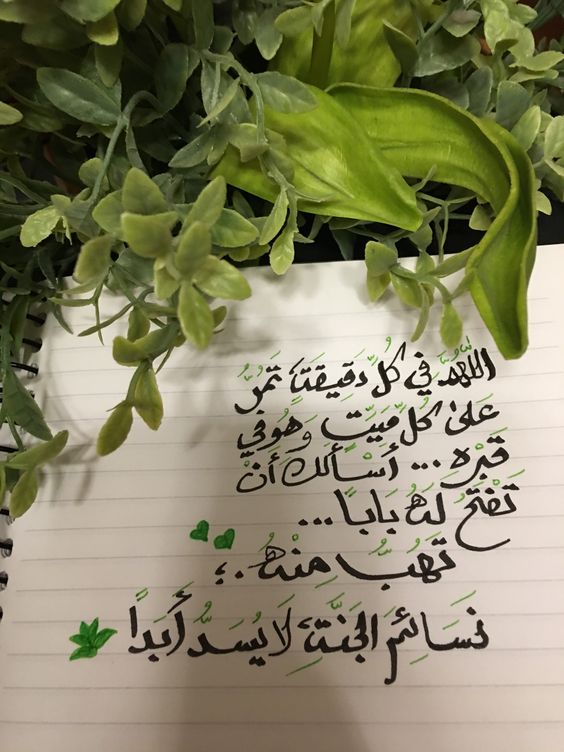 اللَّهُمَّ فِي كُلِّ دَقِيقَةٍ تَمُرُّ
عَلَى كُلِّ مَيِّتٍ وَهُوَ فِي
قَبْرِهِ ... أَسْأَلُكَ أَنْ
تَفْتَحَ لَهُ بَابًا ...
تَهُبُّ مِنْهُ .؛
نَسَائِمَ الجَنَّةِ لَا يُسَدُّ أَبَدًا